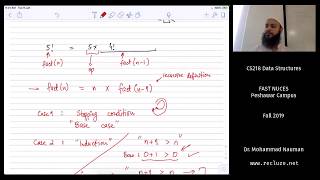 5! = 5 × 4!
fact(5) op fact(n-1)
recursive definition
→ fact(n) = n × fact(n-1)
Case 1 : Stopping condition
"Base case"
Case 2 : "Induction" "n+1 > n"
Base: 0+1 > 0
"n+1 > n"
CS218 Data Structures
FAST NUCES
Peshawar Campus
Fall 2019
Dr. Mohammad Nauman
www.recluze.net